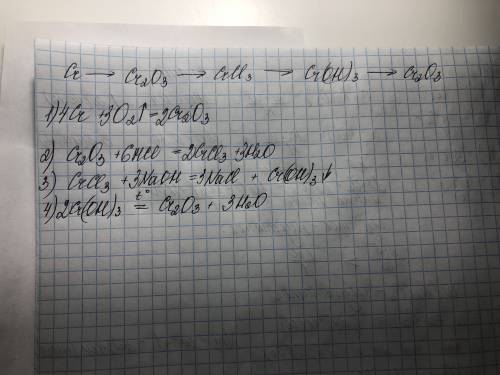 Cr → Cr₂O₃ → CrCl₃ → Cr(OH)₃ → Cr₂O₃
1) 4Cr + 3O₂↑ = 2Cr₂O₃
2) Cr₂O₃ + 6HCl = 2CrCl₃ + 3H₂O
3) CrCl₃ + 3NaOH = 3NaCl + Cr(OH)₃↓
4) 2Cr(OH)₃ =t° Cr₂O₃ + 3H₂O